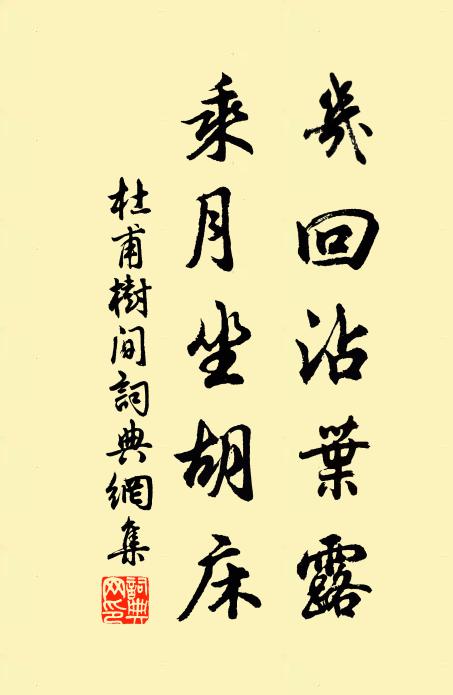 幾回沾葉露
乘月坐胡床
杜甫樹間詞典網集
詞典網印